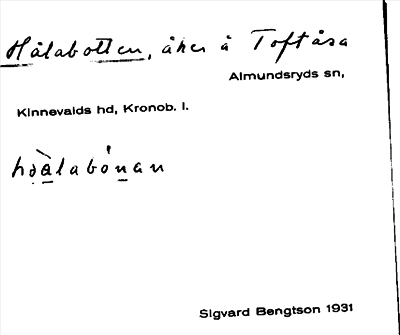 Hålabotten, åker å Toftåsa
Almundsryds sn,
Kinnevalds hd, Kronob. l.
hòàlabónan
Sigvard Bengtson 1931